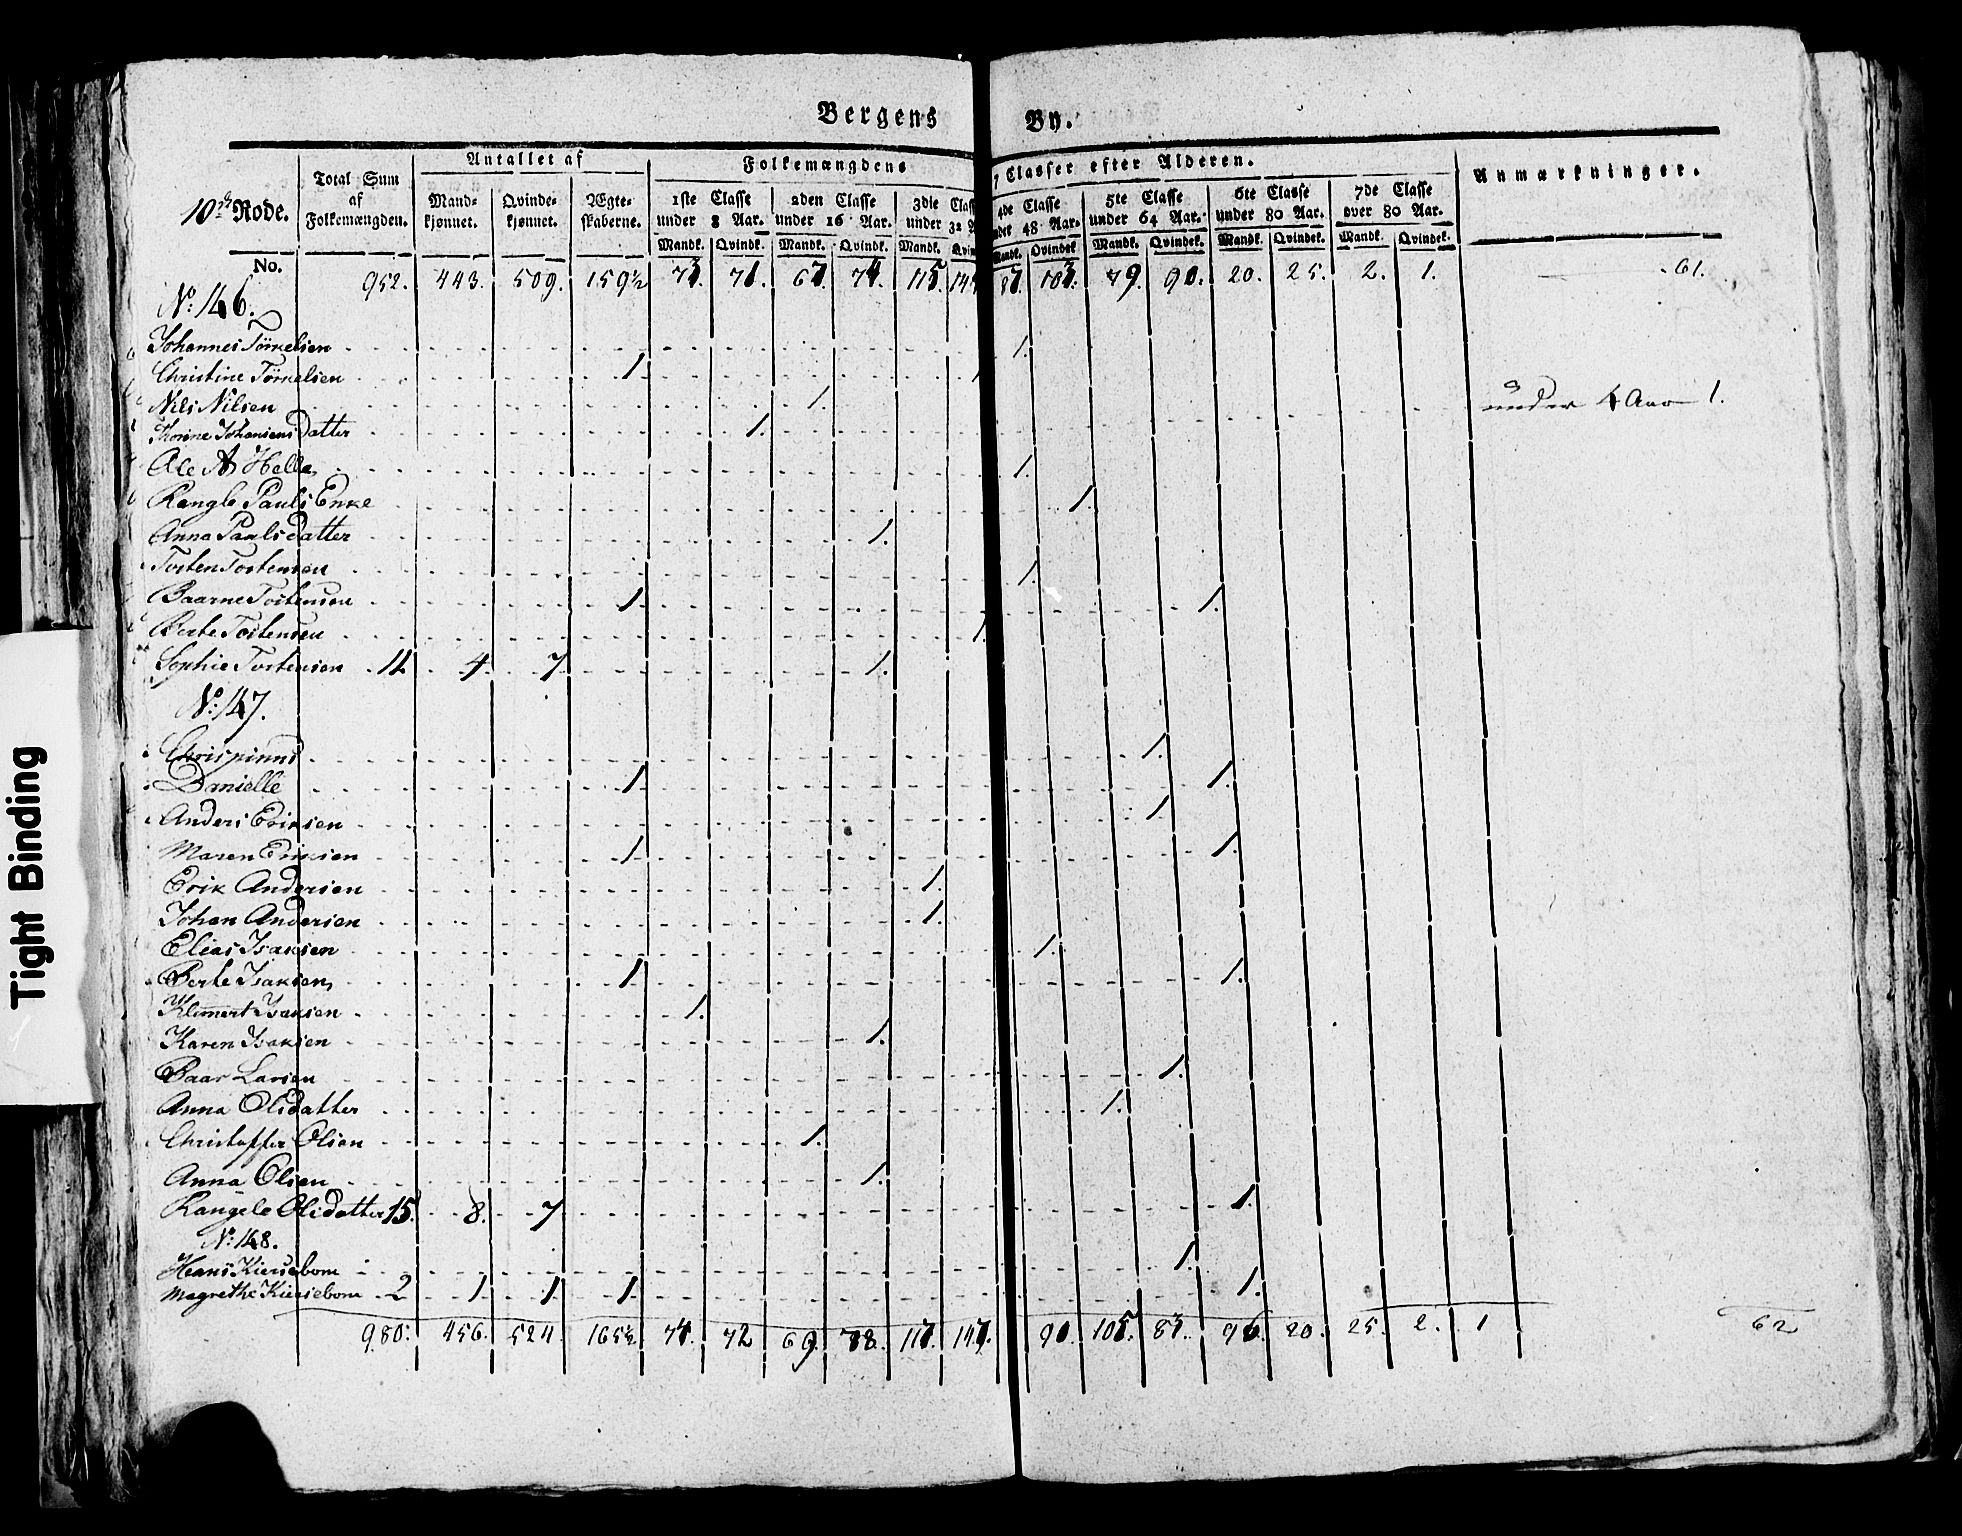 Bergens By.
10de Rode.
Total Sum af Folkemængden.
Antallet af
Mandkjønnet. Qvindekjønnet. Ægteskaberne.
Folkemængdens 7 Classer efter Alderen.
1ste Classe under 8 Aar. 2den Classe under 16 Aar. 3die Class under 32 A 4de Classe nder 48 Aar. 5te Classe under 64 Aar. 6te Classe under 80 Aar. 7de Classe over 80 Aar.
Anmærkninger.
Mandk. Qvindk. Mandk. Qvindk. Mandk. Qvin Mandk. Qvindek Mandk. Qvindek. Mandk. Qvindek. Mandk. Qvindek.
No. 952. 443. 509. 159½ 73. 71. 67. 74. 115. 144 87. 103. 79. 90. 20. 25. 2. 1. 61.
No. 146.
Johannes Törkelsen 1.
Christine Törkelsen 1. 1
Nils Nilsen 1. under 4 Aar 1.
Thorine Johansens Datter 1.
Ole A Helle 1.
Rangle Pauls Enke 1.
Anna Paulsdatter 1.
Torsten Tostensen 1.
Baarne Tostensen 1. 1.
Berte Tostensen 1.
Sophie Tostensen 11 4. 7 1.
No. 147.
Chrispinus 1.
Danielle 1. 1.
Anders Eriksen 1.
Maren Eriksen 1. 1.
Erik Andersen 1.
Johan Andersen 1.
Elias Isaksen 1.
Berte Isaksen 1. 1.
Klemert Isaksen 1.
Karen Isaksen 1.
Baar Larsen 1.
Anna Olsdatter 1.
Christoffer Olsen 1.
Anna Olsen 1.
Rangele Olsdatter 15. 8. 7 1.
No. 148.
Hans Kiersebom 1.
Magrethe Kiersebom 2 1. 1. 1. 1.
980. 456. 524. 165½ 74. 72 69. 78. 117. 147. 90. 105. 83. 96. 20. 25. 2. 1 62
Tight Binding